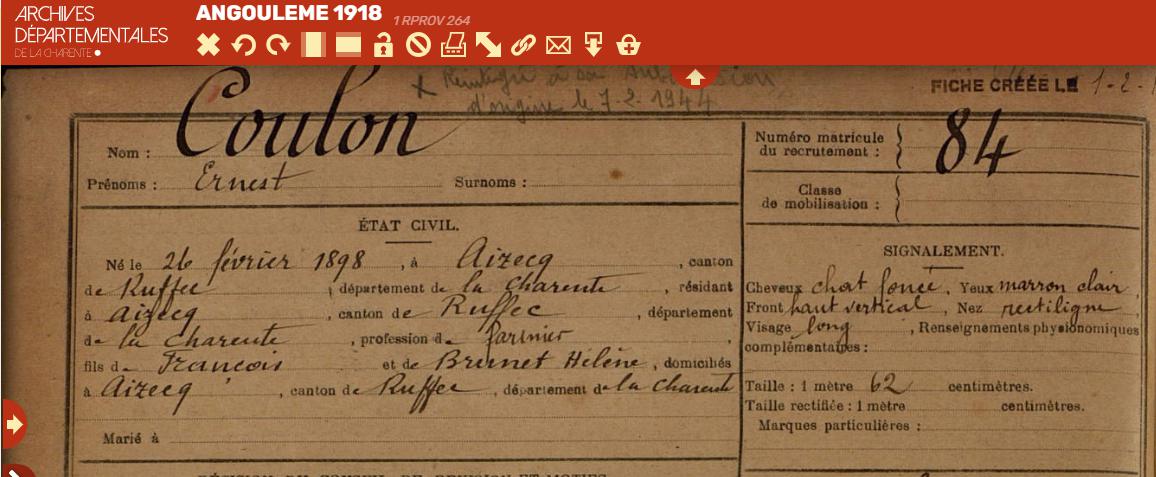 ARCHIVES
DÉPARTEMENTALES
DE LA CHARENTE
ANGOULEME 1918 1 RPROV 264
x Réintégré à sa
d'origine le 7-2-1944
FICHE CRÉÉE LE 1-2-1
Nom : Coulon
Prénoms : Ernest Surnoms :
Numéro matricule
du recrutement : 84
Classe
de mobilisation :
ÉTAT CIVIL.
Né le 26 février 1898 , à Aizecq , canton
de Ruffec , département de la Charente , résidant
à Aizecq , canton de Ruffec , département
de la Charente , profession de farinier ,
fils de Francois et de Brunet Hélène , domiciliés
à Aizecq , canton de Ruffec , département de la Charente
Marié à
SIGNALEMENT.
Cheveux chat foncé , Yeux marron clair ,
Front haut vertical , Nez rectiligne ,
Visage long , Renseignements physionomiques
complémentaires :
Taille : 1 mètre 62 centimètres.
Taille rectifiée : 1 mètre centimètres.
Marques particulières :
DÉCISION DU CONSEIL DE REVISION ET MOTIFS.